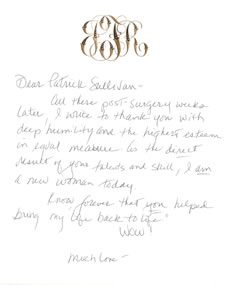 Dear Patrick Sullivan —
All these post-surgery weeks
later, I write to thank you with
deep humility and the highest esteem
in equal measure. As the direct
result of your talents and skill, I am
a new woman today.
Know forever that you helped
bring my life back to life"
Wow!
Much love —